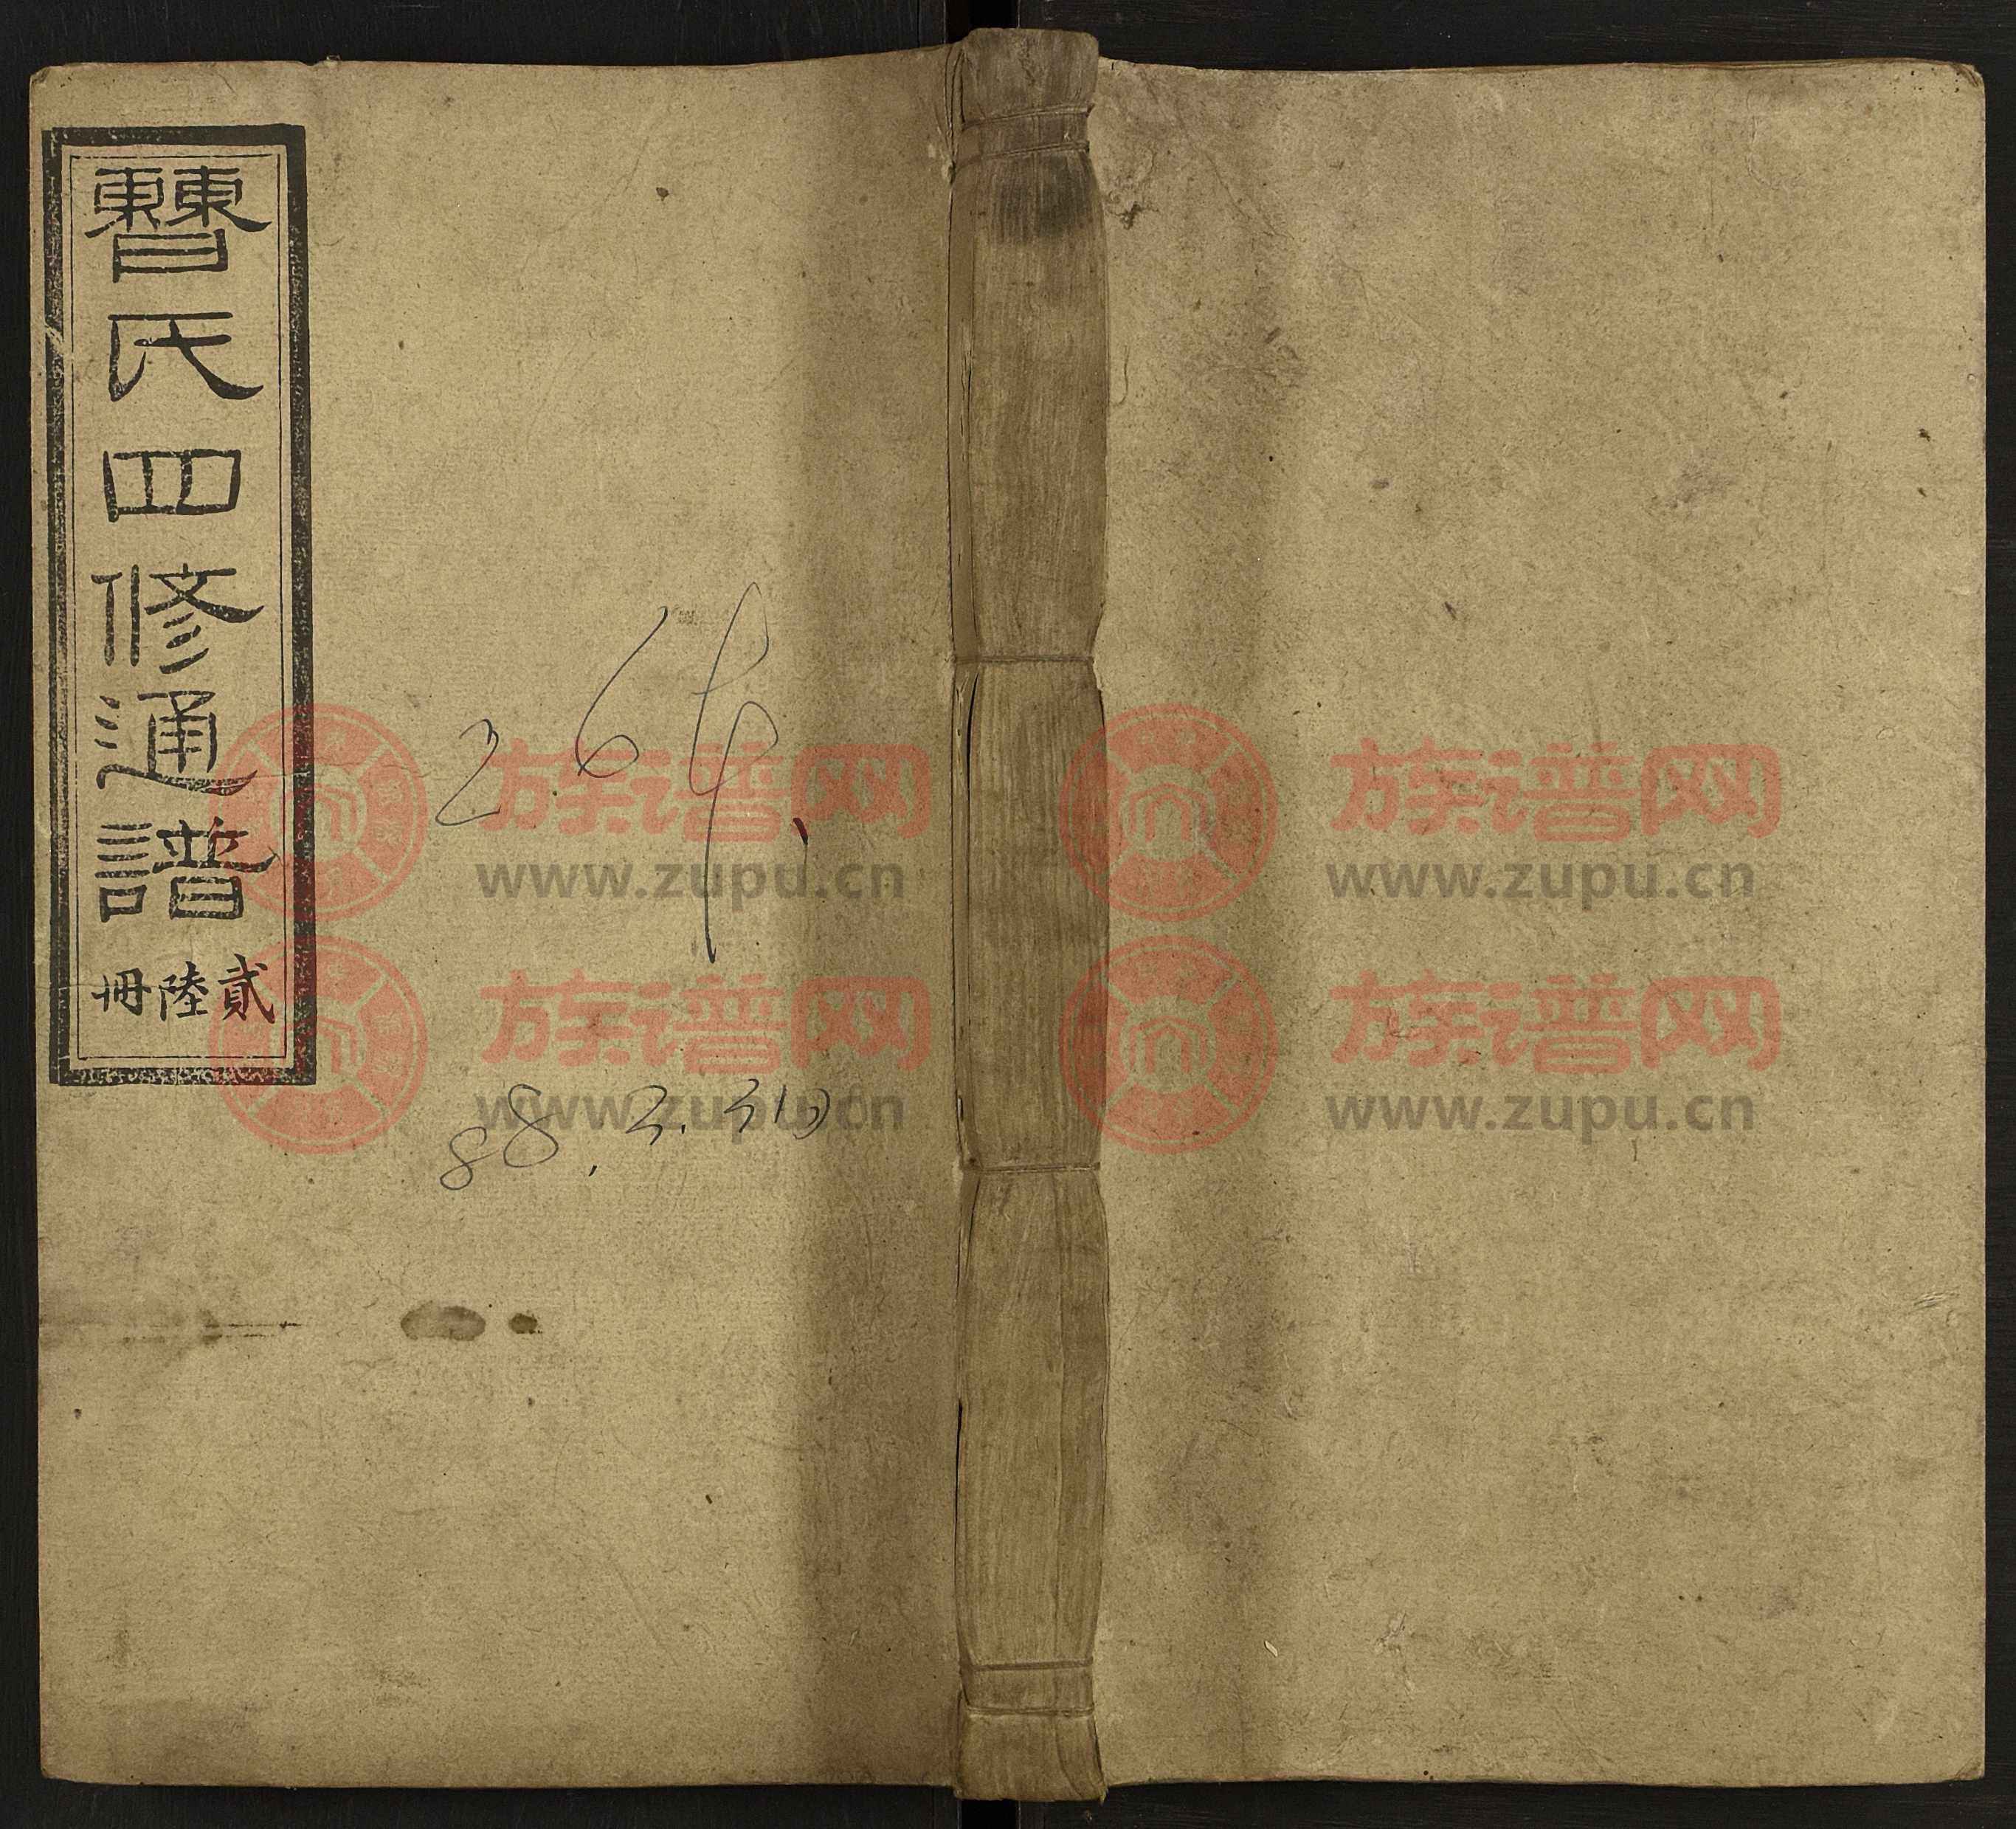 𣍘氏四修通譜
貳陸冊
26
88.3.31日
族谱网 www.zupu.cn
族谱网 www.zupu.cn
族谱网 www.zupu.cn
族谱网 www.zupu.cn